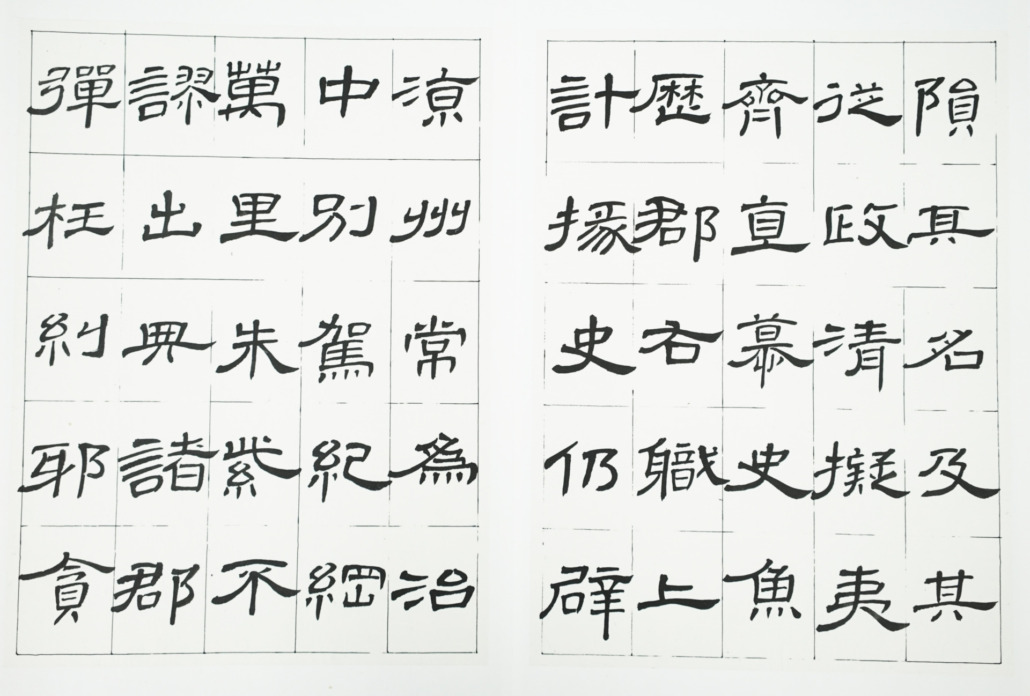 隕其名及其
從政清擬夷
齊直慕史魚
歷郡右職上
計掾史仍辟
涼州常為治
中別駕紀綱
萬里朱紫不
謬出典諸郡
彈枉糾耶貪